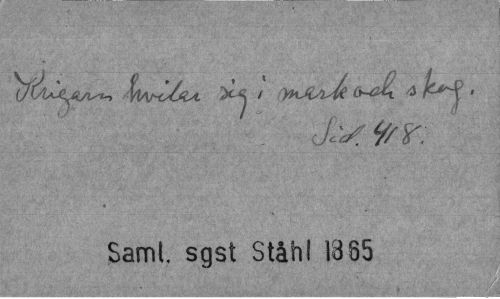 Krigarn hvilar sig i mark och skog.
Sid. 418.
Saml. sgst Ståhl 1865